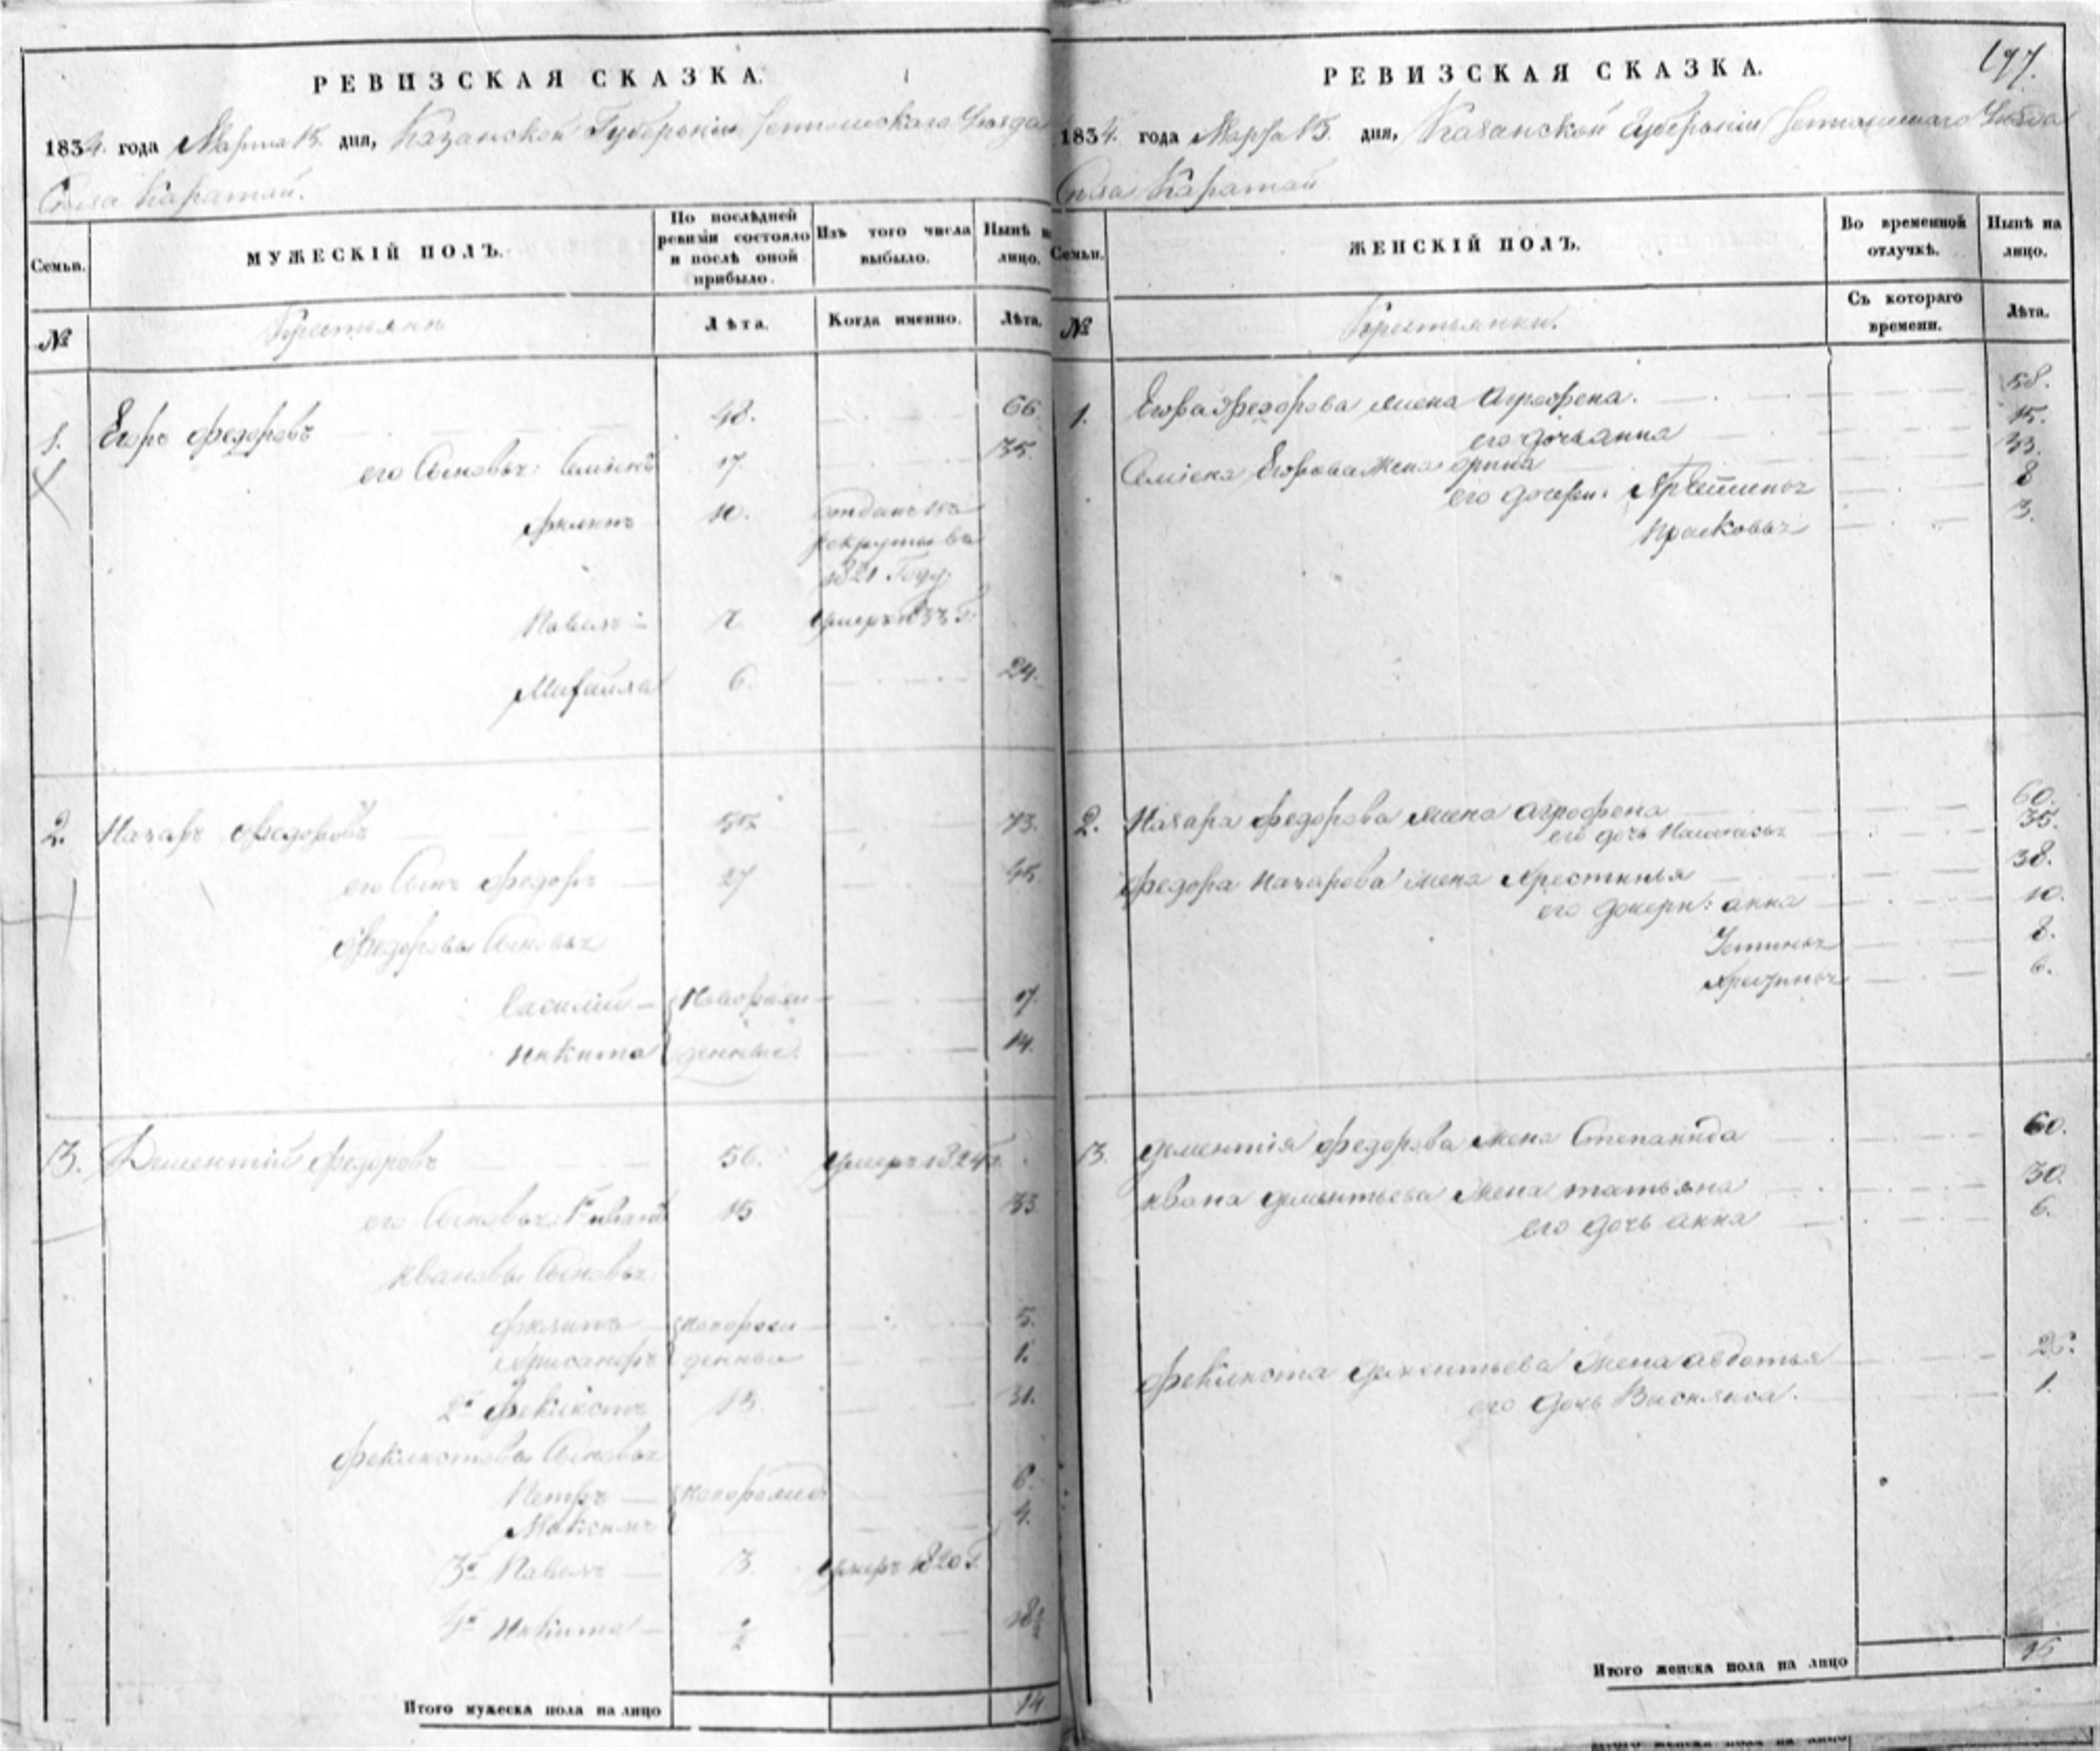 РЕВИЗСКАЯ СКАЗКА.
1834. года Марта 15. дня, Казанской Губернии Уезда
Села Каратай.
Семьи.
МУЖЕСКІЙ ПОЛЪ.
По послѣдней ревизіи состояло и послѣ оной прибыло.
Изъ того числа выбыло.
Нынѣ на лицо.
№
Крестьяне
Лѣта.
Когда именно.
Лѣта.
1. Егоръ Федоровъ 48. 66.
его Сыновья: 17. 35.
10. отданъ въ
рекруты въ
1821 Году
Павелъ 7. умеръ
Михайла 6. 24.
2. Назаръ Федоровъ 55 73.
его Сынъ Федоръ 27 45.
Федоровы Сыновья
Василий Новорож 17.
Никита денные 14.
3. Дементий Федоровъ 56. умеръ
его Сыновья: 1й Иванъ 15 33
Ивановы Сыновья
Филипъ новорож 5.
денныя 1.
2й Феклистъ 13. 31.
Феклистовы Сыновья
Петръ новорожд 6.
Максимъ 4.
3й Павелъ 3. умеръ 1820 Г.
4й Никита 1/2 18 1/2
Итого мужеска пола на лицо 14
197.
РЕВИЗСКАЯ СКАЗКА.
1834. года Марта 15. дня, Казанской Губернии Уезда
Села Каратай
Семьи.
ЖЕНСКІЙ ПОЛЪ.
Во временной отлучкѣ.
Нынѣ на лицо.
№
Крестьянки.
Съ котораго времени.
Лѣта.
1. Егора Федорова жена Агрофена. 58.
его дочь анна 15.
Егорова жена орина 33.
его дочери: 8
Прасковья 3.
2. Назара Федорова жена агрофена 60.
его дочь Настасья 35.
Федора Назарова жена Хрестинья 38.
его дочери: анна 10.
Устинья 8.
6.
3. Дементия Федорова жена Степанида 60.
Ивана Дементьева жена татьяна 30.
его дочь анна 6.
Феклиста Дементьева жена авдотья
его дочь 1.
Итого женска пола на лицо 15